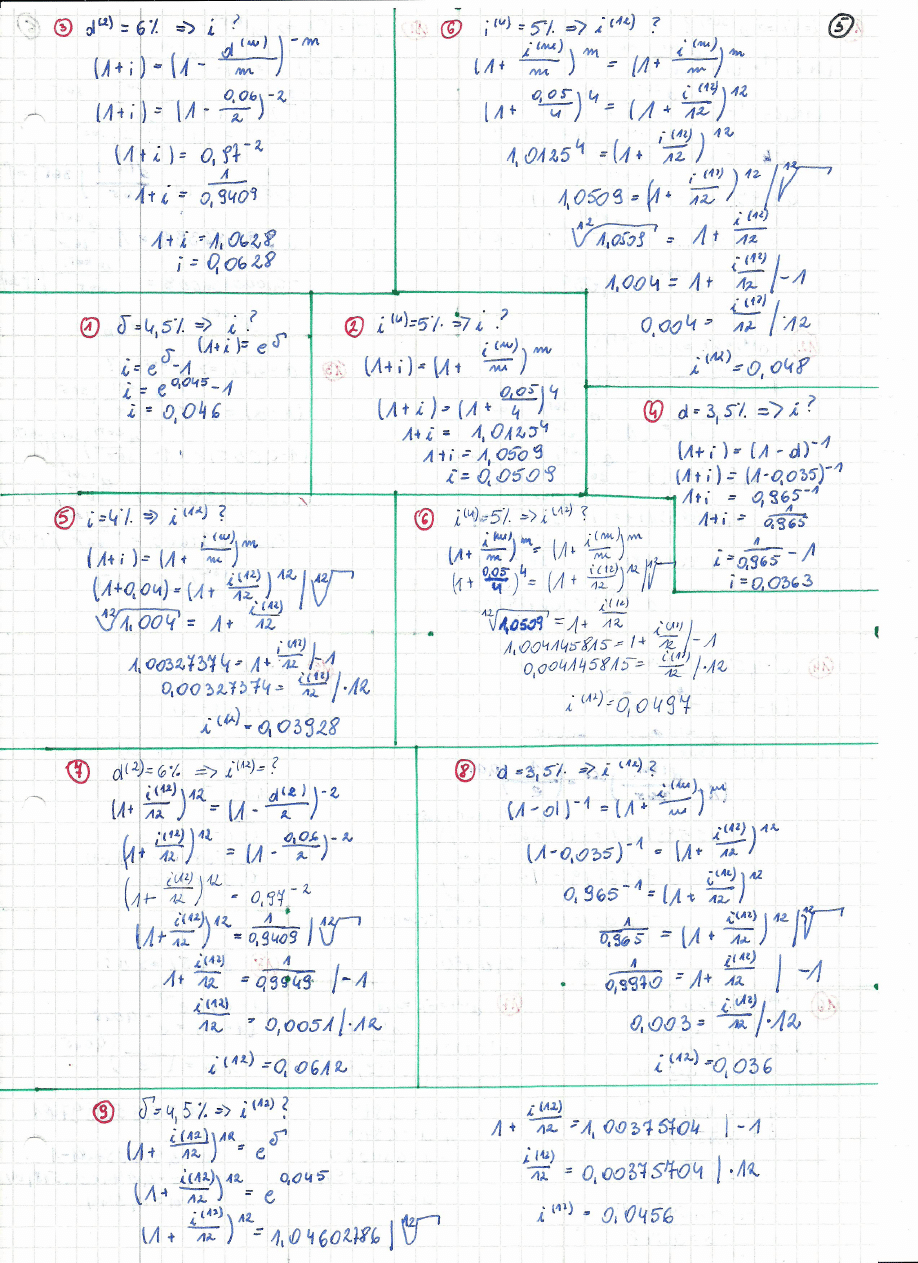 5
3 d⁽²⁾ = 6% => i ?
(1+i) = (1 - d⁽ᵐ⁾/m)^-m
(1+i) = (1 - 0,06/2)^-2
(1+i) = 0,97^-2
1+i = 1/0,9409
1+i = 1,0628
i = 0,0628
6 i⁽⁴⁾ = 5% => i⁽¹²⁾ ?
(1 + i⁽ᵐ⁾/m)^m = (1 + i⁽ᵐ⁾/m)^m
(1 + 0,05/4)^4 = (1 + i⁽¹²⁾/12)^12
1,0125^4 = (1 + i⁽¹²⁾/12)^12
1,0509 = (1 + i⁽¹²⁾/12)^12 | ¹²√
¹²√1,0509 = 1 + i⁽¹²⁾/12
1,004 = 1 + i⁽¹²⁾/12 | -1
0,004 = i⁽¹²⁾/12 | ·12
i⁽¹²⁾ = 0,048
1 δ = 4,5% => i ?
(1+i) = e^δ
i = e^δ - 1
i = e^0,045 - 1
i = 0,046
2 i⁽⁴⁾ = 5% => i ?
(1+i) = (1 + i⁽ᵐ⁾/m)^m
(1+i) = (1 + 0,05/4)^4
1+i = 1,0125^4
1+i = 1,0509
i = 0,0509
4 d = 3,5% => i ?
(1+i) = (1-d)^-1
(1+i) = (1-0,035)^-1
1+i = 0,965^-1
1+i = 1/0,965
i = 1/0,965 - 1
i = 0,0363
5 i = 4% => i⁽¹²⁾ ?
(1+i) = (1 + i⁽ᵐ⁾/m)^m
(1+0,04) = (1 + i⁽¹²⁾/12)^12 | ¹²√
¹²√1,004 = 1 + i⁽¹²⁾/12
1,00327374 = 1 + i⁽¹²⁾/12 | -1
0,00327374 = i⁽¹²⁾/12 | ·12
i⁽¹²⁾ = 0,03928
6 i⁽⁴⁾ = 5% => i⁽¹²⁾ ?
(1 + i⁽ᵐ⁾/m)^m = (1 + i⁽ᵐ⁾/m)^m
(1 + 0,05/4)^4 = (1 + i⁽¹²⁾/12)^12 | ¹²√
¹²√1,0509 = 1 + i⁽¹²⁾/12
1,004145815 = 1 + i⁽¹²⁾/12 | -1
0,004145815 = i⁽¹²⁾/12 | ·12
i⁽¹²⁾ = 0,0497
7 d⁽²⁾ = 6% => i⁽¹²⁾ = ?
(1 + i⁽¹²⁾/12)^12 = (1 - d⁽²⁾/2)^-2
(1 + i⁽¹²⁾/12)^12 = (1 - 0,06/2)^-2
(1 + i⁽¹²⁾/12)^12 = 0,97^-2
(1 + i⁽¹²⁾/12)^12 = 1/0,9409 | ¹²√
1 + i⁽¹²⁾/12 = 1/0,9949 | -1
i⁽¹²⁾/12 = 0,0051 | ·12
i⁽¹²⁾ = 0,0612
8 d = 3,5% => i⁽¹²⁾ ?
(1-d)^-1 = (1 + i⁽ᵐ⁾/m)^m
(1-0,035)^-1 = (1 + i⁽¹²⁾/12)^12
0,965^-1 = (1 + i⁽¹²⁾/12)^12
1/0,965 = (1 + i⁽¹²⁾/12)^12 | ¹²√
1/0,9970 = 1 + i⁽¹²⁾/12 | -1
0,003 = i⁽¹²⁾/12 | ·12
i⁽¹²⁾ = 0,036
9 δ = 4,5% => i⁽¹²⁾ ?
(1 + i⁽¹²⁾/12)^12 = e^δ
(1 + i⁽¹²⁾/12)^12 = e^0,045
(1 + i⁽¹²⁾/12)^12 = 1,04602786 | ¹²√
1 + i⁽¹²⁾/12 = 1,00375704 | -1
i⁽¹²⁾/12 = 0,00375704 | ·12
i⁽¹²⁾ = 0,0456